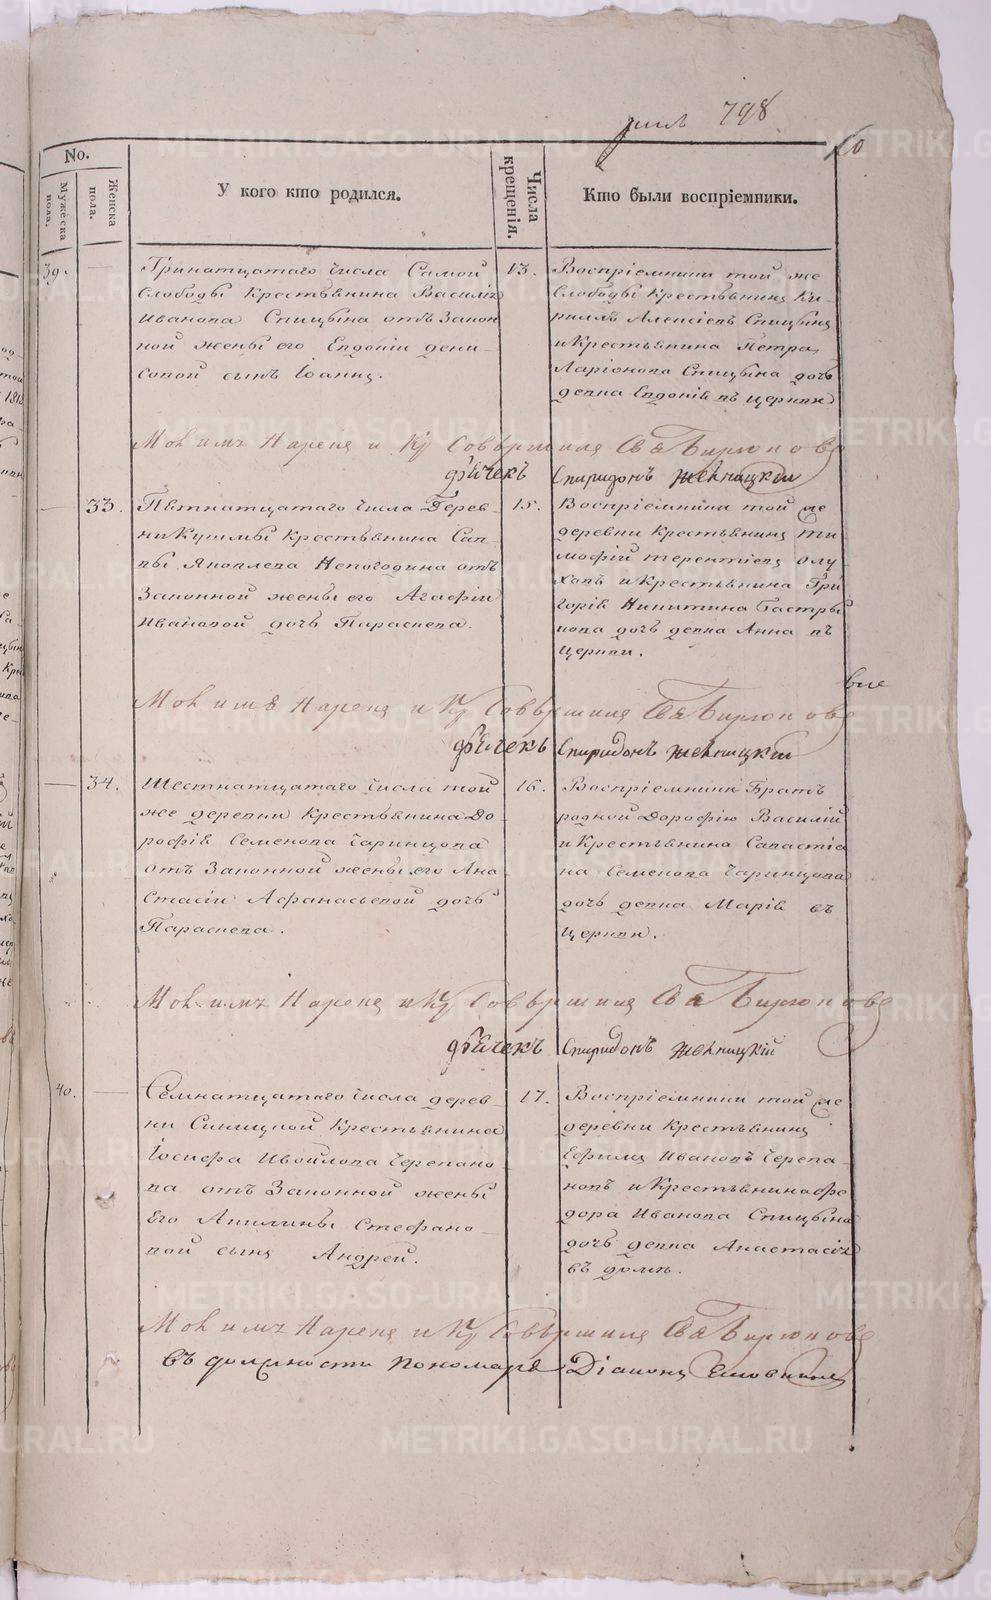 798
No.
Мужеска пола.
Женска пола.
У кого кто родился.
Числа крещенія.
Кто были воспріемники.
39.
Тринатцатаго Числа Самой
Слободы Крестьянина Василія
Иванова Спицына отъ Закон
ной жены его Евдокіи дени-
совой сынъ Іоаннъ.
13.
Воспріемники той же
Слободы Крестьянинъ Ки-
риллъ Алексіевъ Спицынъ
и Крестьянина Петра
Ларіонова Спицына дочь
девка Евдокія въ церкви
Мол имъ Нарекъ и Кр Совершилъ Св Бирюковъ
дьячекъ Спиридонъ
33.
Пятнатцатаго числа Дерев-
ни Крестьянина Сав-
вы Яковлева Непогодина отъ
Законной жены его Агафіи
Ивановой дочь Параскева.
15.
Воспріемники той же
деревни Крестьянинъ ти
мофій терентіевъ
и Крестьянина Гри
горія Никитина
дочь девка Анна въ
церкви.
Мол имя Нарекъ и Кр Совершилъ Св Бирюковъ
дьячекъ Спиридонъ
34.
Шестнатцатаго числа той
же деревни Крестьянина До-
рофія Семенова
отъ Законной жены его Ана
стасіи Афанасьевой дочь
Параскева.
16.
Воспріемники Братъ
родной Дорофію Василій
и Крестьянина Савастія
на Семенова
дочь девка Марія въ
церкви.
Мол имъ Нарекъ и Кр Совершилъ Св Бирюковъ
дьячекъ Спиридонъ
40.
Семнатцатаго числа дерев-
ни Синицной Крестьянина
Іосифа Черепано
ва отъ Законной жены
Его Акилины Стефано-
вой сынъ Андрей.
17.
Воспріемники той же
деревни Крестьянинъ
Иванъ Черепа-
новъ и Крестьянина Фе
дора Иванова Спицына
дочь девка Анастасія
въ домѣ.
Мол имъ Нарекъ и Кр Совершилъ Св Бирюковъ
въ должности Пономаря Діаконъ
METRIKI.GASO-URAL.RU